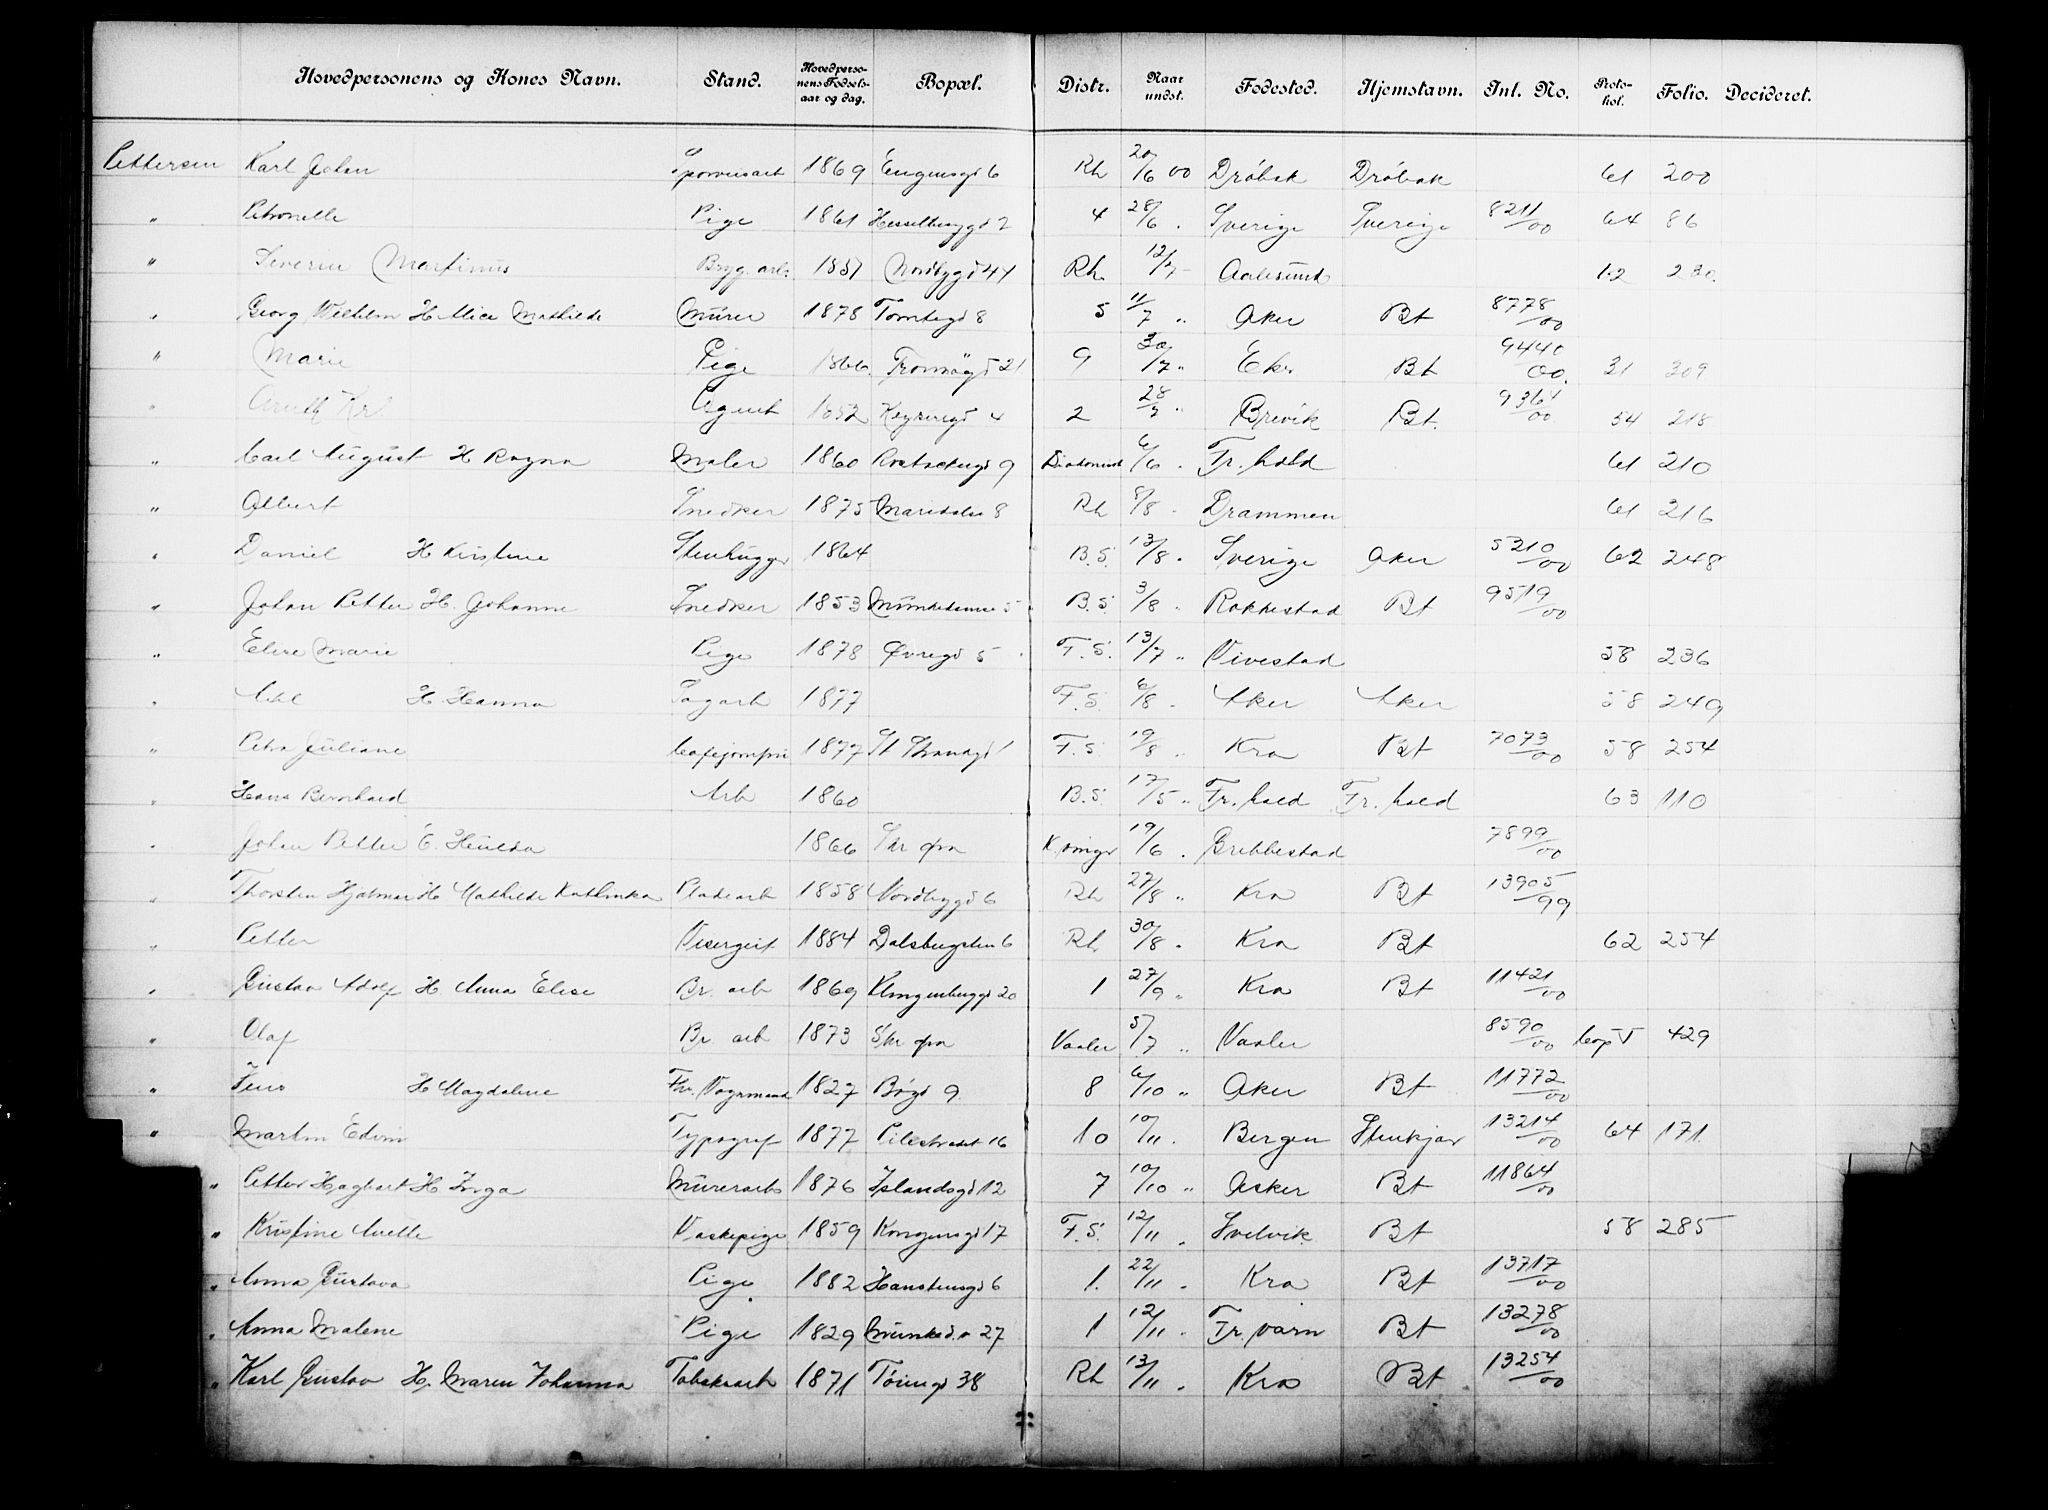 Hovedpersonens og Kones Navn. Stand. Hovedpersonens Fødselsaar og dag. Bopæl. Distr. Naar undst. Fødested. Hjemstavn. Inl. No. Protokol. Folio. Decideret.
Pettersen Karl Johan Sporveisarb 1869 Eugensgd 6 Rh 20/6 00 Dröbak Dröbak 61 200
" Petronelle Pige 1861 Hesselbergd 2 4 28/6 . Sverige Sverige 8211/00 64 86
" Severin Martinus Bryg. arb. 1857 Nordbygd 44 Rh. 12/7 - Aalesund 62 230
" Georg Wilhelm H Alice Mathilde Murer 1878 Tomtegd 8 5 11/7 " Aker Bt 8778/00
" Marie Pige 1866. Tromsögd 21 9 30/7 " Eker Bt 9440/00. 31 309
" Arnt Kr Agent 1852 Keysersgd 4 2 28/7 " Brevik Bt. 9364/00 54 218
" Carl August H Ragna Maler 1860 9 6/6 . Fr. hald 61 210
" Albert Snedker 1875 Maridalsv 8 Rh 8/8 . Drammen 61 216
" Daniel H Kirstine Stenhugger 1864 B.S. 13/8 . Sverige Aker 5210/00 62 248
" Johan Petter H. Johanne Snedker 1853 Munkedamsv 5 B.S. 3/8 " Rakkestad Bt 9519/00
" Elise Marie Pige 1878 Øvregd 5 F.S. 13/7 " Vivestad 58 236
" Axel H. Hanna Sagarb 1877 F.S. 6/8 . Aker Aker 58 249
" Petra Juliane Cafejomfru 1877 St Strandgd 1 F.S. 19/8 " Kra Bt 7073/00 58 254
" Hans Bernhard Arb 1860 B.S. 17/5 " Fr. hald Fr. hald 63 110
" Johan Petter E. Hulda 1866 Skr fra Kongsvgr 19/6 . Brekkestad 7899/00
" Thorsten Hjalmar H Mathilde Kathinka Pladearb 1858 Nordbygd 6 Rh 27/8 " Kra Bt 13905/99
" Petter Visergut 1884 Dalsbergstien 6 Rh 30/8 . Kra Bt 62 254
" Gustav Adolf H Anna Elise Br. arb 1869 Klingenberggd 20 1 27/9 " Kra Bt 11421/00
" Olaf Br. arb 1873 Skr fra Vaaler 5/7 " Vaaler 8590/00 Cop V 429
" Jens H Magdalene Fhv. Vognmand 1827 Bögd 9 8 6/10 " Aker Bt 11772/00
" Martin Edvin Typograf 1877 Pilestrædet 16 10 10/11 . Bergen Stenkjær 13214/00 64 171
" Petter Hagbart H Inga Murerarb 1876 Islandsgd 12 7 10/10 " Asker Bt 11864/00
" Kristine Anette Vaskepige 1859 Kongensgd 17 F.S. 12/11 " Svelvik Bt 58 285
" Anna Gustava Pige 1882 Hansteensgd 6 1. 22/11 . Kra Bt 13717/00
" Anna Malene Pige 1829 Munked.v 27 1 12/11 . Fr. værn Bt 13278/00
" Karl Gustav H. Maren Johanna Tobaksarb 1871 Töiengd 38 Rh 13/11 . Kra Bt 13254/00